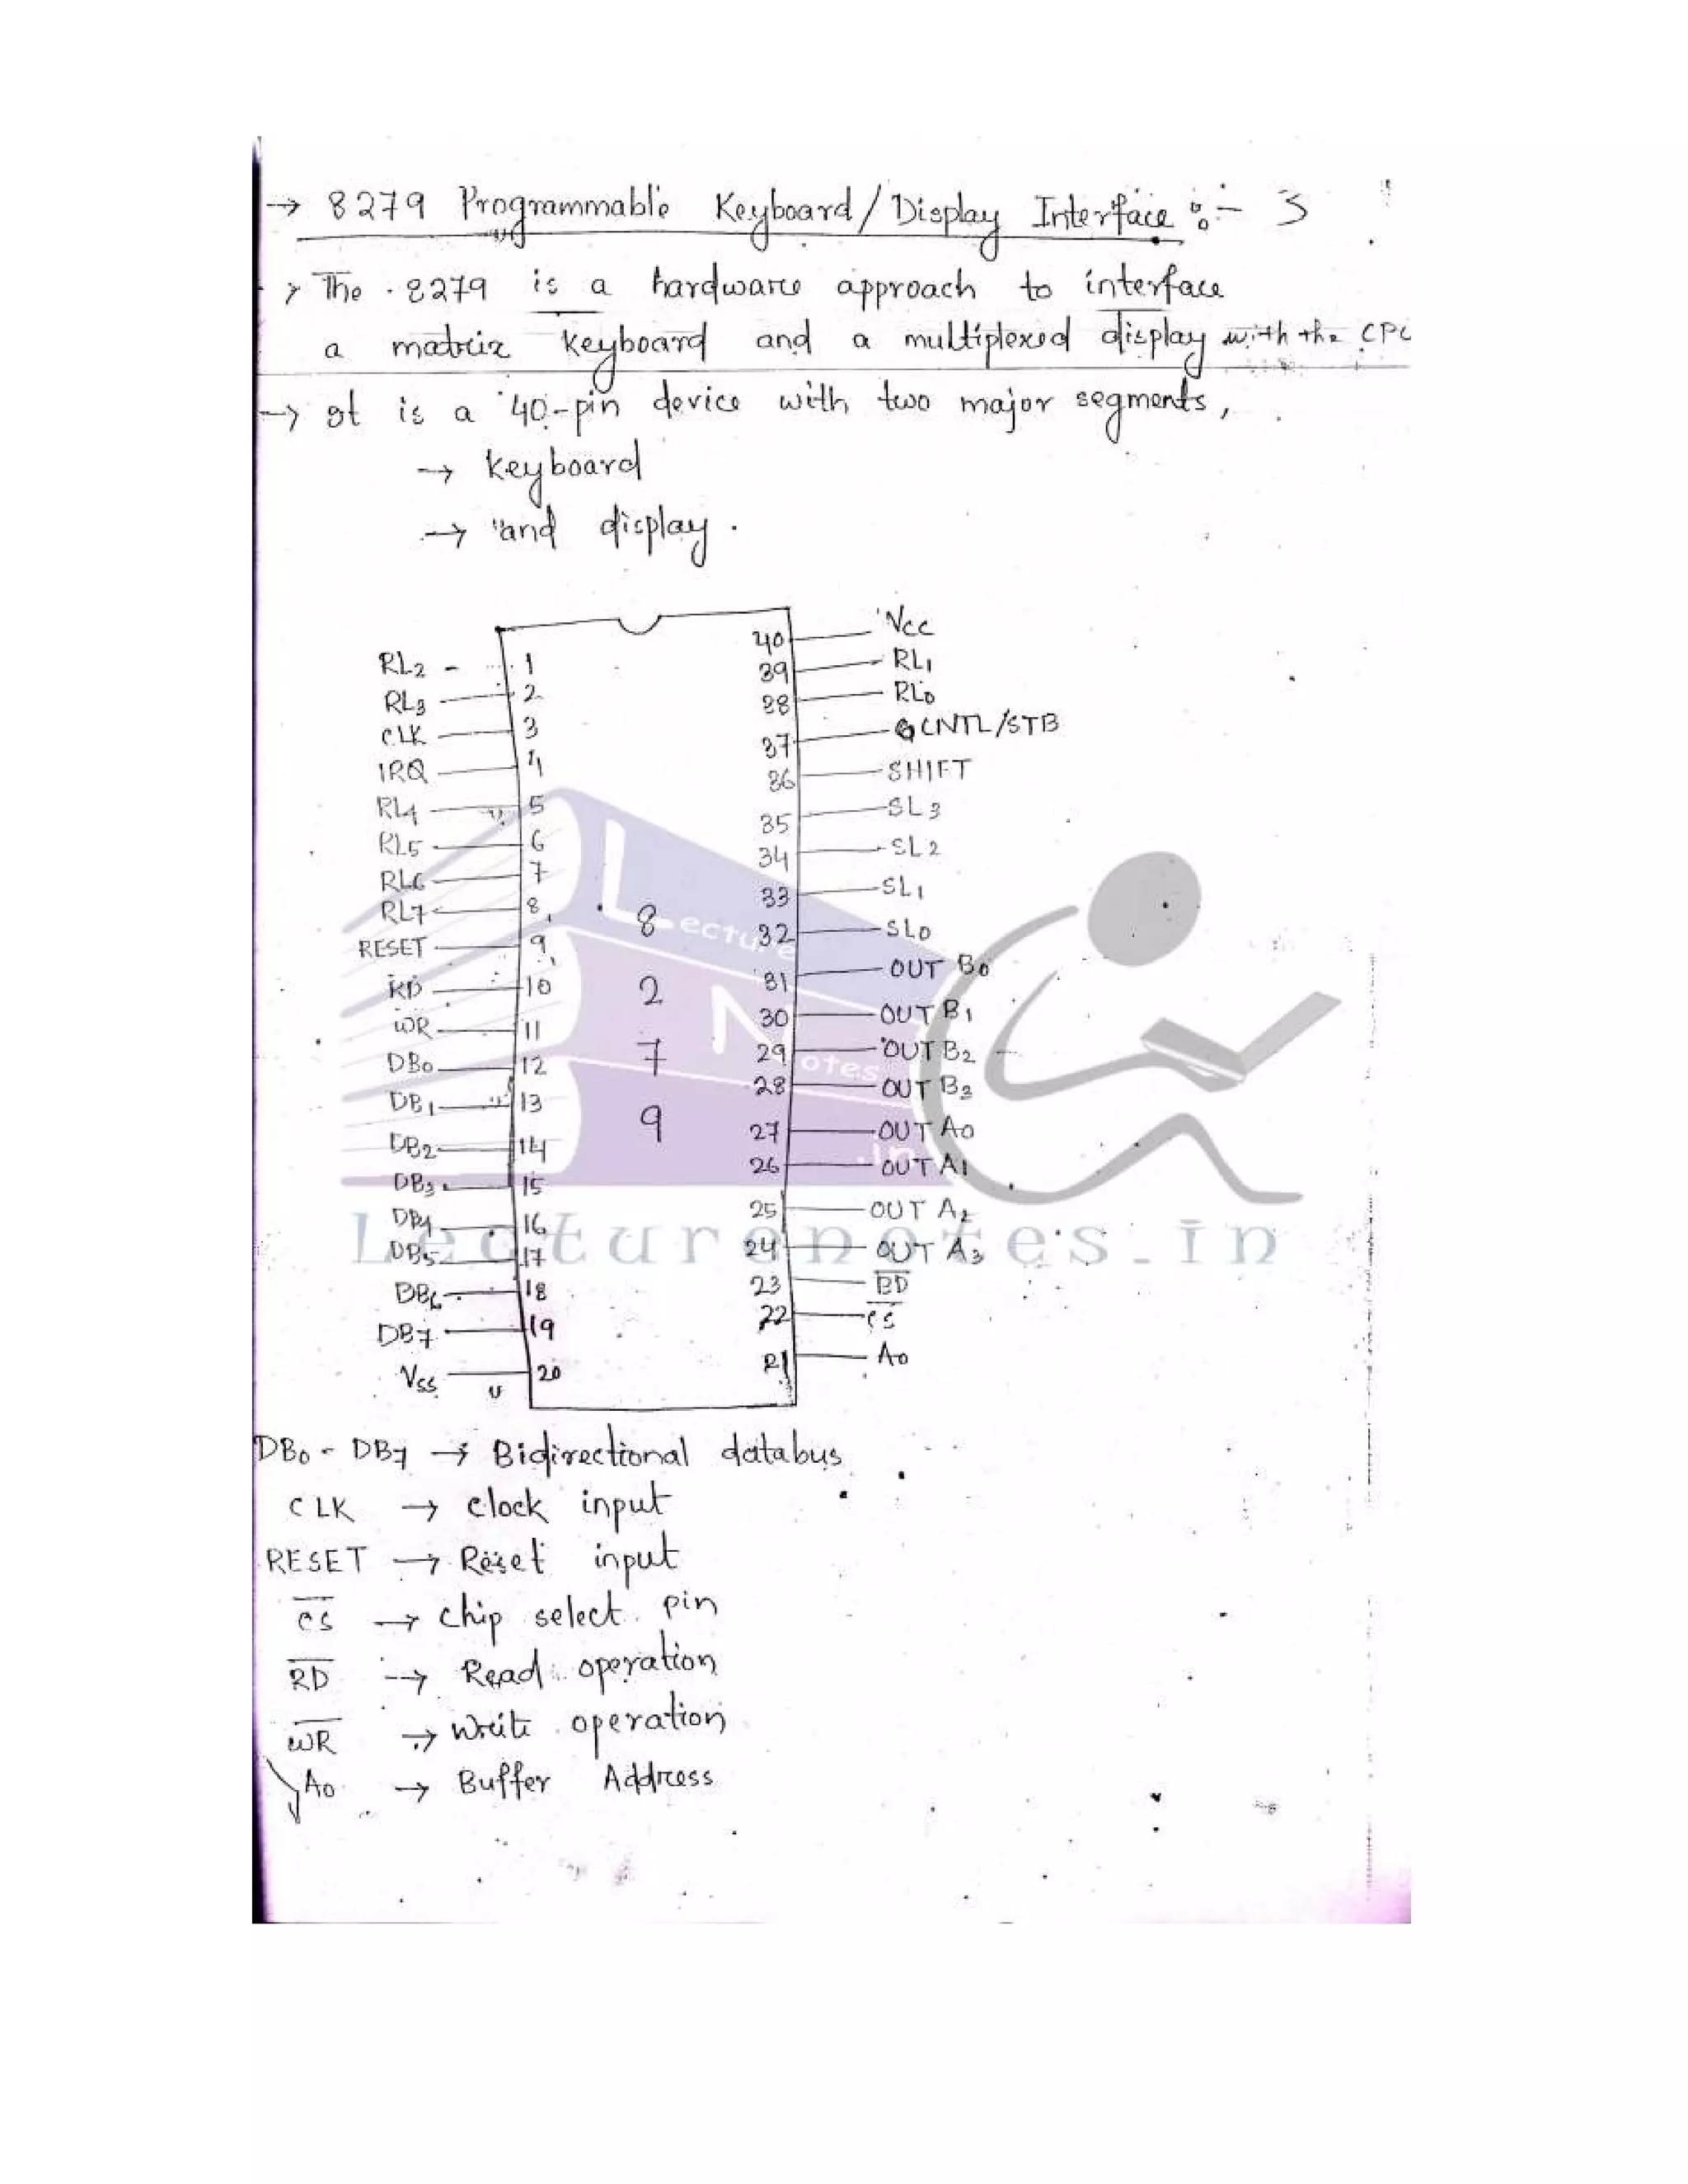 → 8279 Programmable Keyboard/Display Interface :- 3
→ The 8279 is a hardware approach to interface
a matrix keyboard and a multiplexed display with the CPU
→ It is a 40-pin device with two major segments,
→ keyboard
→ and display.
RL2 - 1 40 Vcc
RL3 2 39 RL1
CLK 3 38 RL0
IRQ 4 37 CNTL/STB
RL4 5 36 SHIFT
RL5 6 35 SL3
RL6 7 34 SL2
RL7 8 33 SL1
RESET 9 32 SL0
RD 10 31 OUT B0
WR 11 30 OUT B1
DB0 12 29 OUT B2
DB1 13 28 OUT B3
DB2 14 27 OUT A0
DB3 15 26 OUT A1
DB4 16 25 OUT A2
DB5 17 24 OUT A3
DB6 18 23 BD
DB7 19 22 CS
Vss 20 21 A0
8
2
7
9
Lecture
Notes
.in
Lecturenotes.in
DB0 - DB7 → Bidirectional databus
CLK → clock input
RESET → Reset input
CS → chip select pin
RD → Read operation
WR → Write operation
A0 → Buffer Address